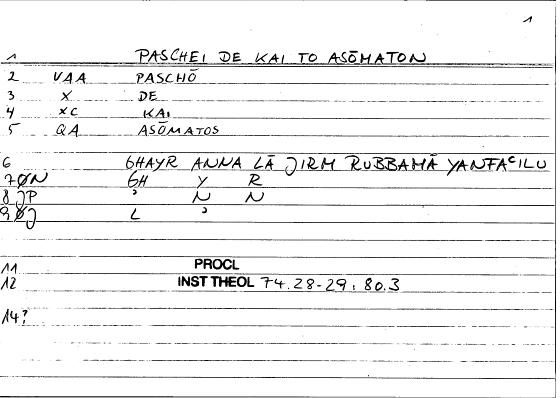 1
1 PASCHEI DE KAI TO ASŌMATON
2 VAA PASCHŌ
3 X DE
4 XC KAI
5 QA ASŌMATOS
6 GHAYR ANNA LĀ JIRM RUBBAMĀ YANFAʿILU
7 ØN GH Y R
8 JP ʾ N N
9 ØJ L ʾ
11 PROCL
12 INST THEOL 74.28-29: 80.3
14?